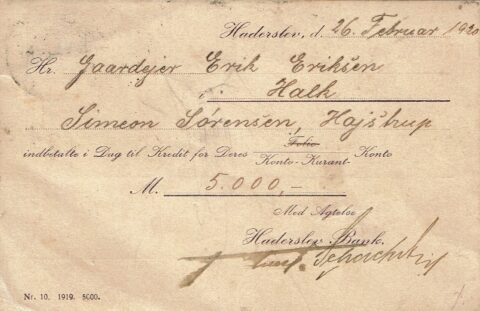 Haderslev, d. 26. Februar 1920
Hr. Gaardejer Erik Eriksen
i Halk
Simeon Sørensen, Hajstrup
indbetalte i Dag til Kredit for Deres Folio-
Konto-Kurant- Konto
M. 5.000,-
Med Agtelse
Haderslev Bank.
Nr. 10. 1919. 5000.